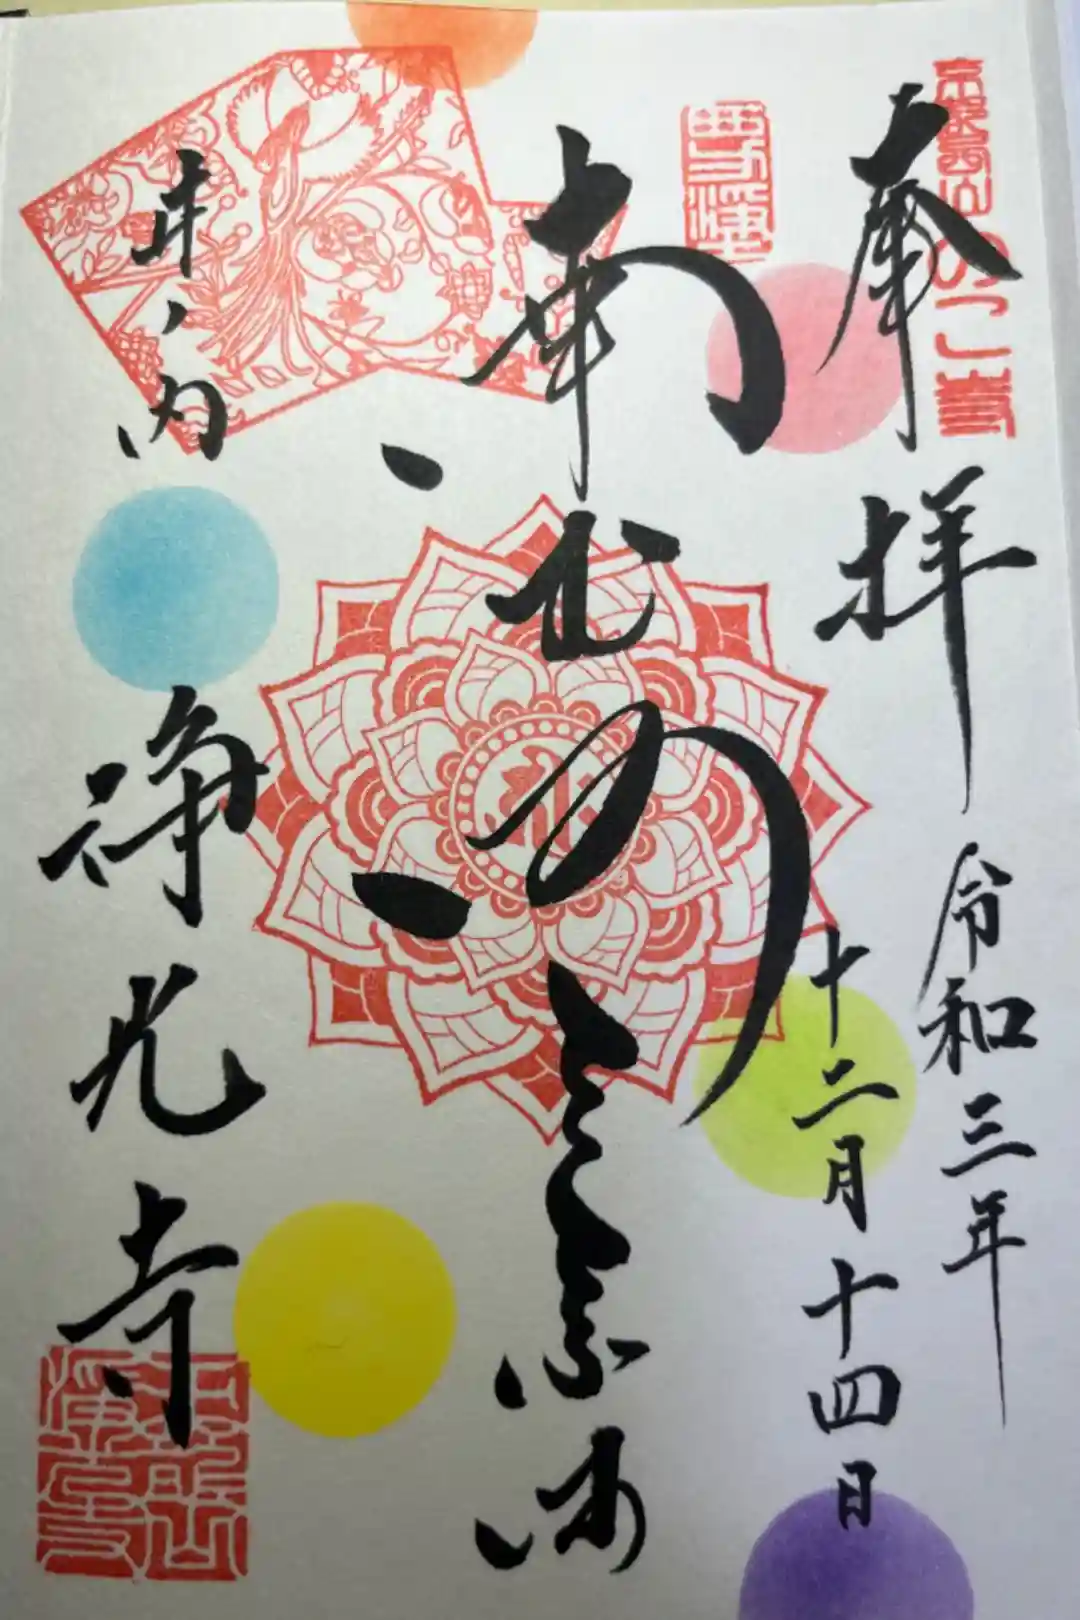 奉拝
令和三年
十二月十四日
南無阿弥陀佛
井ノ内
浄光寺